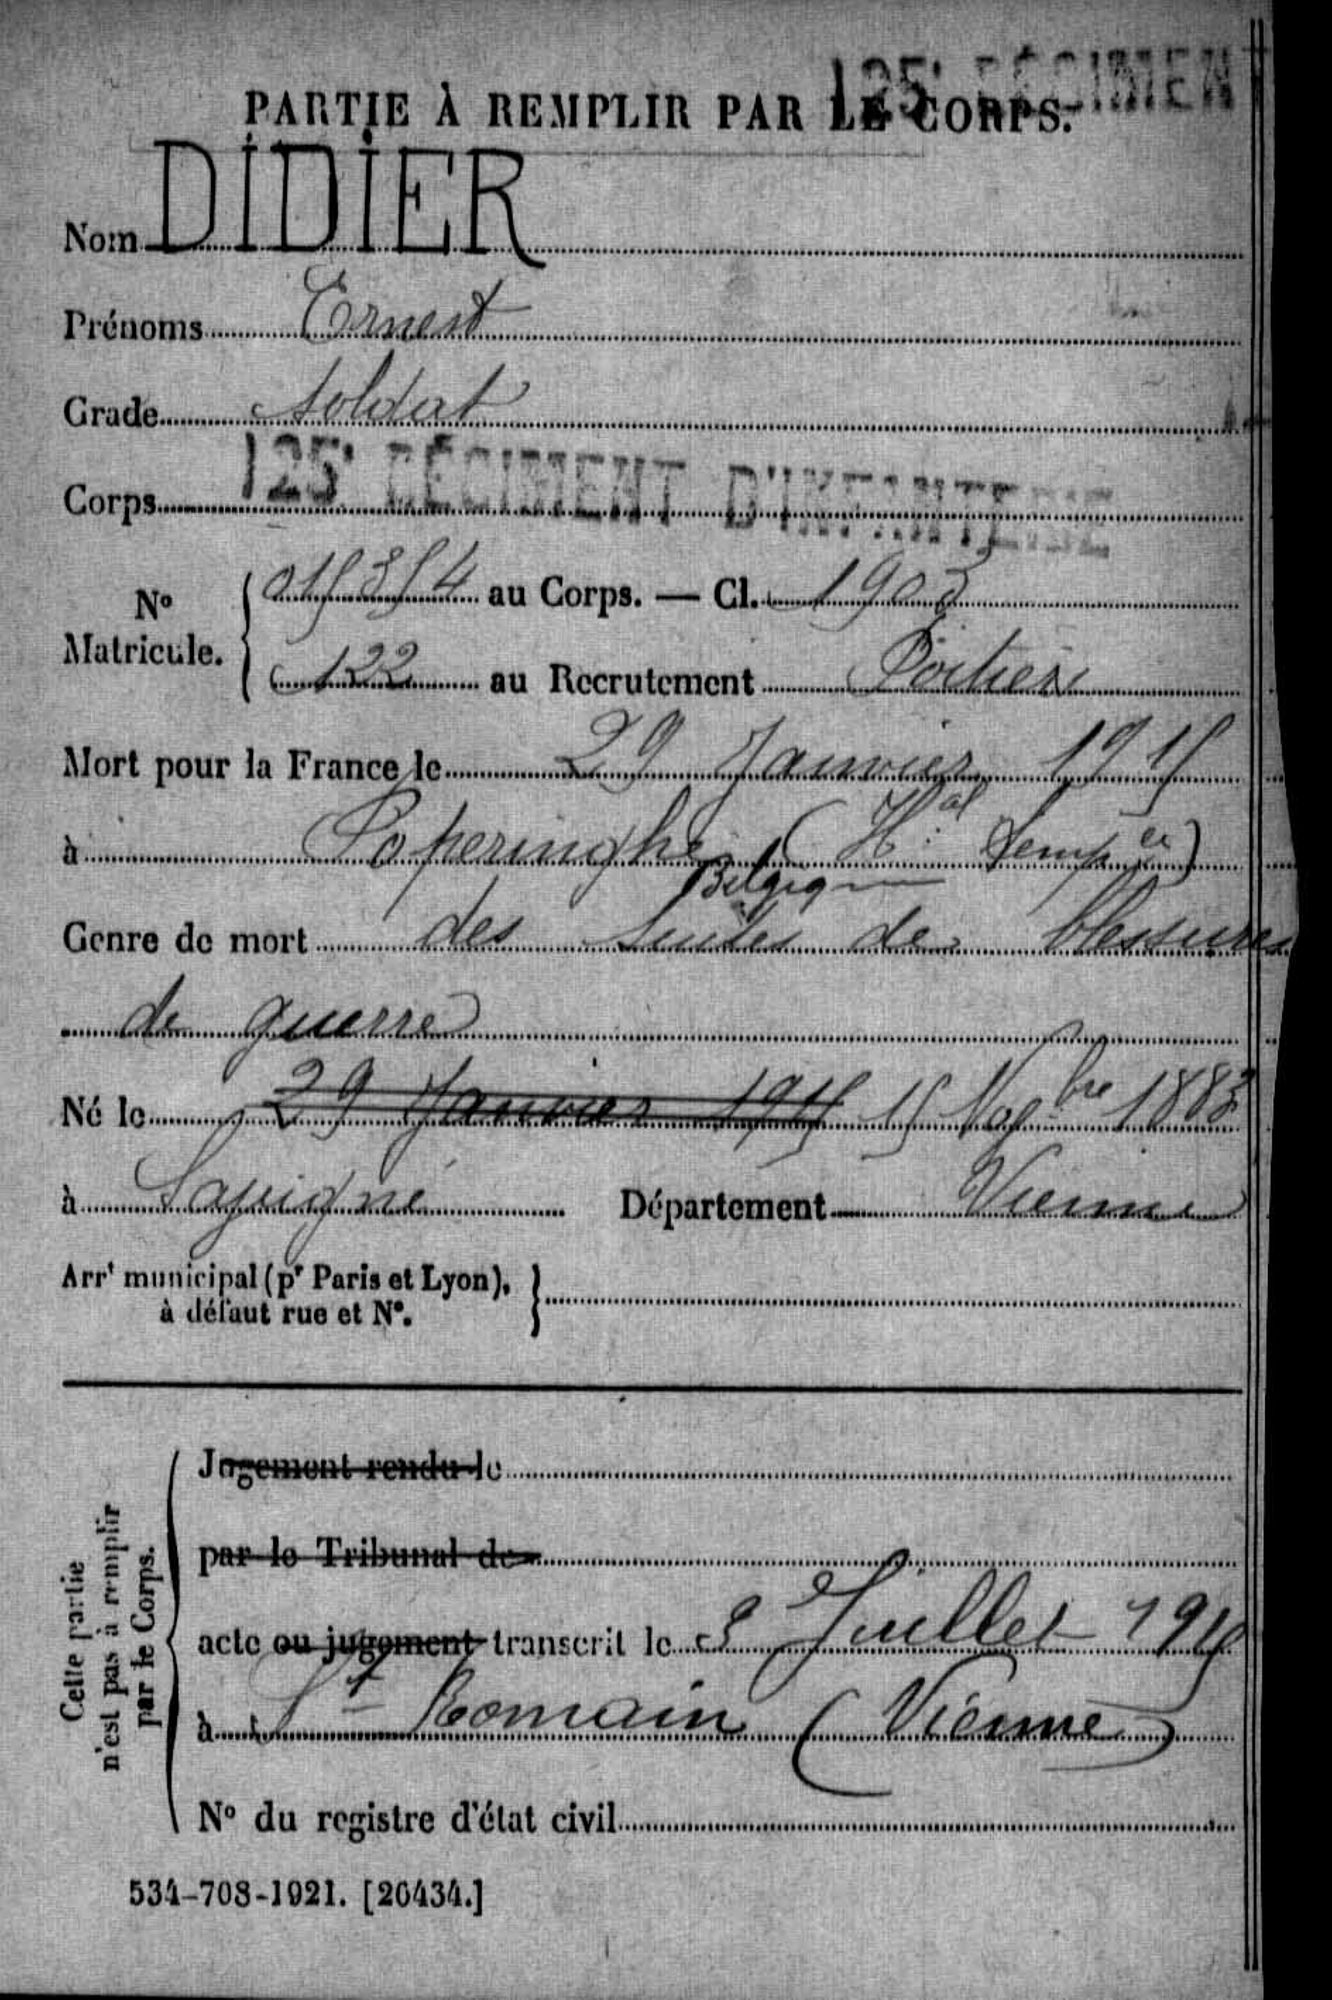 125e RÉGIMENT
PARTIE À REMPLIR PAR LE CORPS.
Nom DIDIER
Prénoms Ernest
Grade Soldat
Corps 125e RÉGIMENT D'INFANTERIE
No Matricule. { 015354 au Corps. — Cl. 1903
122 au Recrutement Poitiers
Mort pour la France le 29 Janvier 1915
à Poperinghe (H.al Temp.re)
Belgique
Genre de mort des suites de blessures
de guerre
Né le 29 Janvier 1915 15 Novbre 1883
à Savigné Département Vienne
Arrt municipal (pr Paris et Lyon), }
à défaut rue et No.
Cette partie
n'est pas à remplir
par le Corps.
Jugement rendu le
par le Tribunal de
acte ou jugement transcrit le 3 Juillet 1915
à St Romain (Vienne)
No du registre d'état civil
534-708-1921. [26434.]